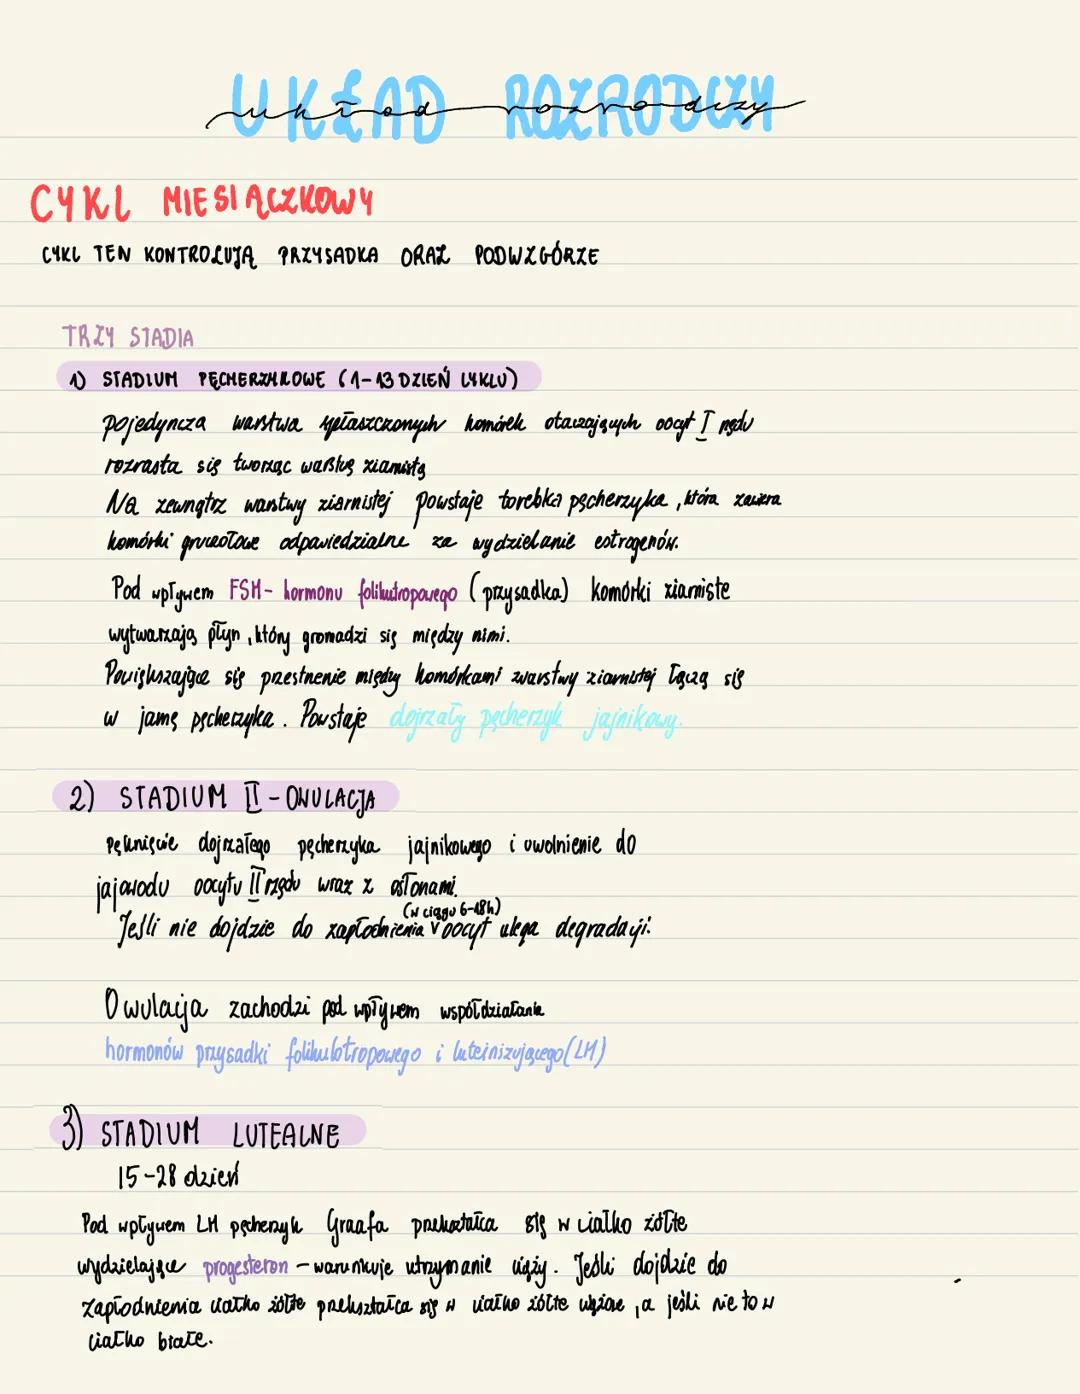 UKŁAD ROZRODCZY
układ rozrodczy
CYKL MIESIĄCZKOWY
CYKL TEN KONTROLUJĄ PRZYSADKA ORAZ PODWZGÓRZE
TRZY STADIA
1) STADIUM PĘCHERZYKOWE (1-13 DZIEŃ CYKLU)
pojedyncza warstwa spłaszczonych komórek otaczających oocyt I rzędu
rozrasta się tworząc warstwę ziarnistą
Na zewnątrz warstwy ziarnistej powstaje torebka pęcherzyka, która zawiera
komórki gruczołowe odpowiedzialne za wydzielanie estrogenów.
Pod wpływem FSH- hormonu folikutropowego (przysadka) komórki ziarniste
wytwarzają płyn, który gromadzi się między nimi.
Powiększające się przestrzenie między komórkami warstwy ziarnistej łączą się
w jamę pęcherzyka. Powstaje dojrzały pęcherzyk jajnikowy.
2) STADIUM II - OWULACJA
Pęknięcie dojrzałego pęcherzyka jajnikowego i uwolnienie do
jajowodu oocytu II rzędu wraz z osłonami.
(w ciągu 6-18h)
Jeśli nie dojdzie do zapłodnienia V oocyt ulega degradacji.
Owulacja zachodzi pod wpływem współdziałania
hormonów przysadki folikulotropowego i luteinizującego (LH)
3) STADIUM LUTEALNE
15-28 dzień
Pod wpływem LH pęcherzyk Graafa przekształca się w ciałko żółte
wydzielające progesteron - warunkuje utrzymanie ciąży. Jeśli dojdzie do
zapłodnienia ciałko żółte przekształca się w ciałko żółte ciążowe, a jeśli nie to w
ciałko białe.